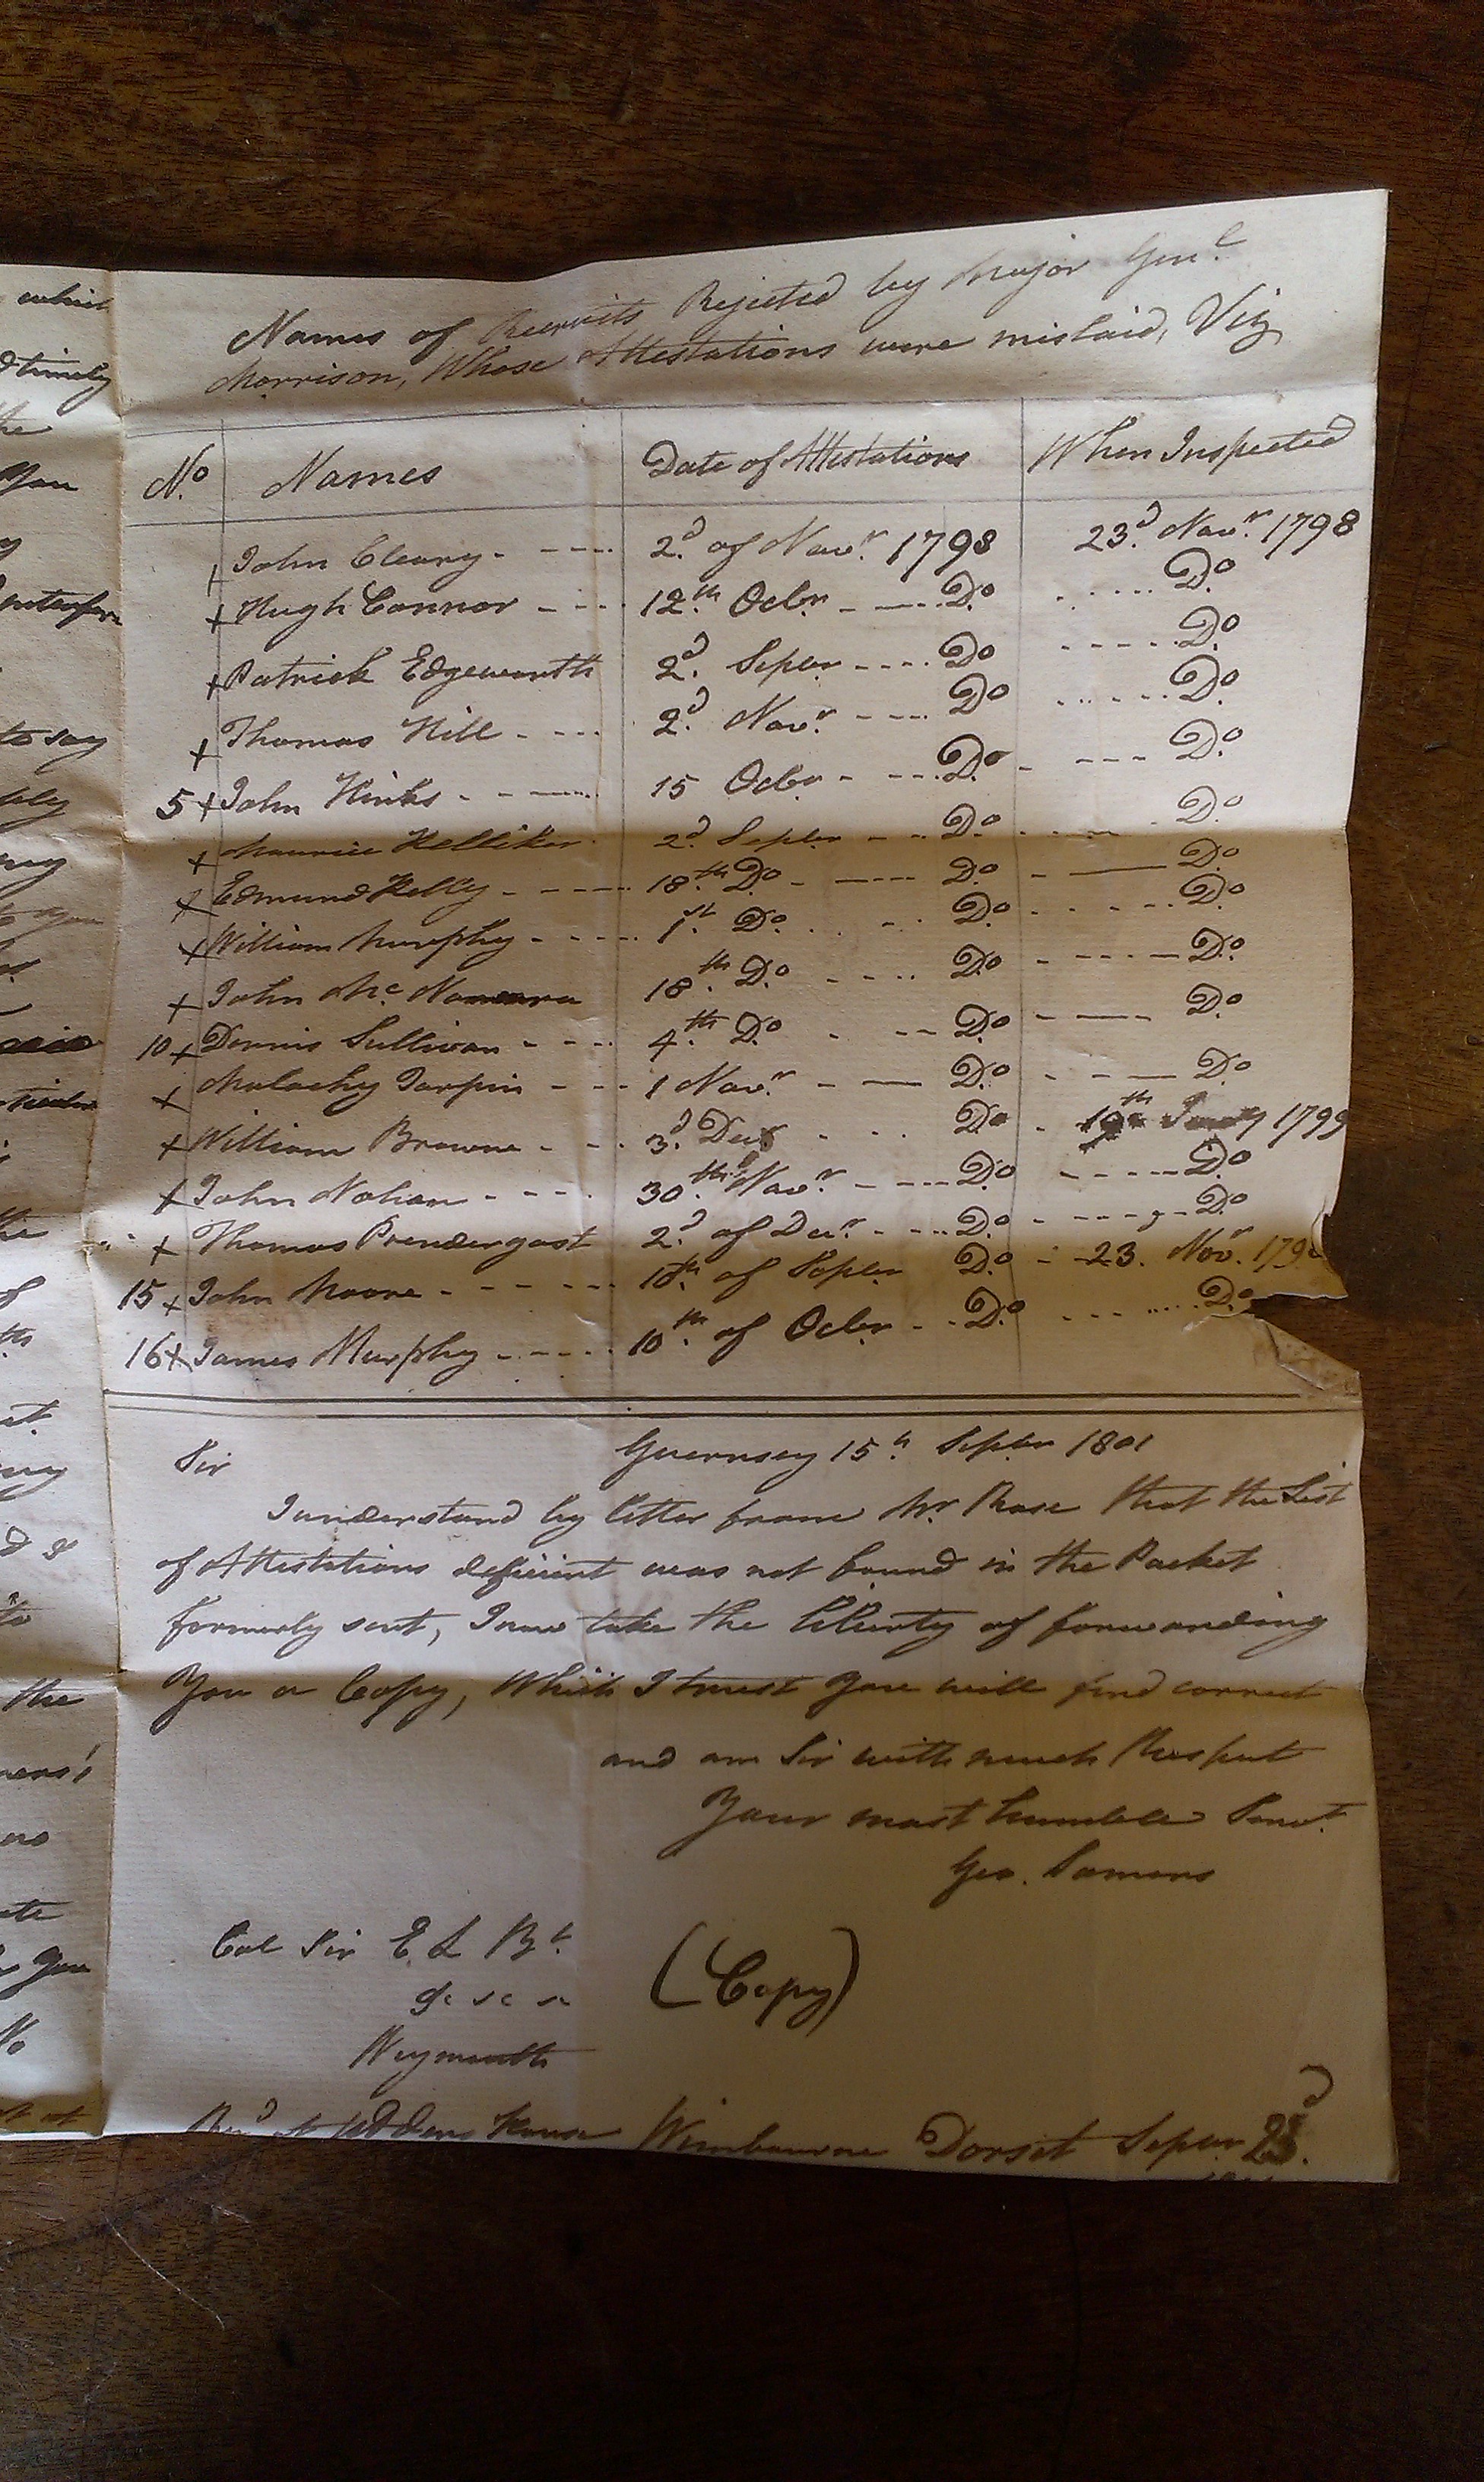 which
& timely
the
You
to say
the
you
the
No
Names of Recruits Rejected by Major Genl
Morrison, Whose Attestations were mislaid, Viz
No. Names Date of Attestations When Inspected
+ John Cleary - ---- 2d. of Novr. 1798 23d. Novr. 1798
+ Hugh Connor - --- 12th. Octbr - ---- Do. ..... Do.
+ Patrick Edgeworth 2d. Septbr ---- Do ----- Do.
+ Thomas Hill - --- 2d. Novr. ---- Do ..... Do.
5 + John Hinks - - ---- 15 Octbr - --- Do. - --- Do.
+ Maurice Helliker 2d. Septbr - -- Do. - --- Do.
+ Edmund Kelly - ---- 18th. Do - ---- Do - ---- Do.
+ William Murphy - ---- 1st. Do. - -- Do. - - - - Do.
+ John Mc. Namara 18th. Do. - --- Do. - ---- Do.
10 + Dennis Sullivan - --- 4th. Do. - -- Do. - ---- Do.
+ Malachy Tarpin - -- 1 Novr. - --- Do. - --- Do.
+ William Browne - -- 3d. Decr - - - Do. - 19th Jany 1799
+ John Nohan - --- 30th. Novr. - ---- Do. ----- Do.
+ Thomas Prendergast 2d. of Decr. - --- Do. - ----- Do.
15 + John Moore - - - - - 18th. of Septbr Do. - 23. Novr. 179
16 + James Murphy - ---- 10th. of Octbr - - Do. - --- .... Do.
Guernsey 15h. Septbr 1801
Sir
I understand by letter from Mr. Rose that the List
of Attestations deficient was not found in the Packet
formerly sent, I now take the liberty of forwarding
You a Copy, Which I trust you will find correct
and am Sir with much Respect
Your most humble Servt.
Geo. Samons
Col Sir E. L Bt.
&c &c &c
(Copy)
Weymouth
Recd at Uddens House Wimbourne Dorset Septbr 23d.